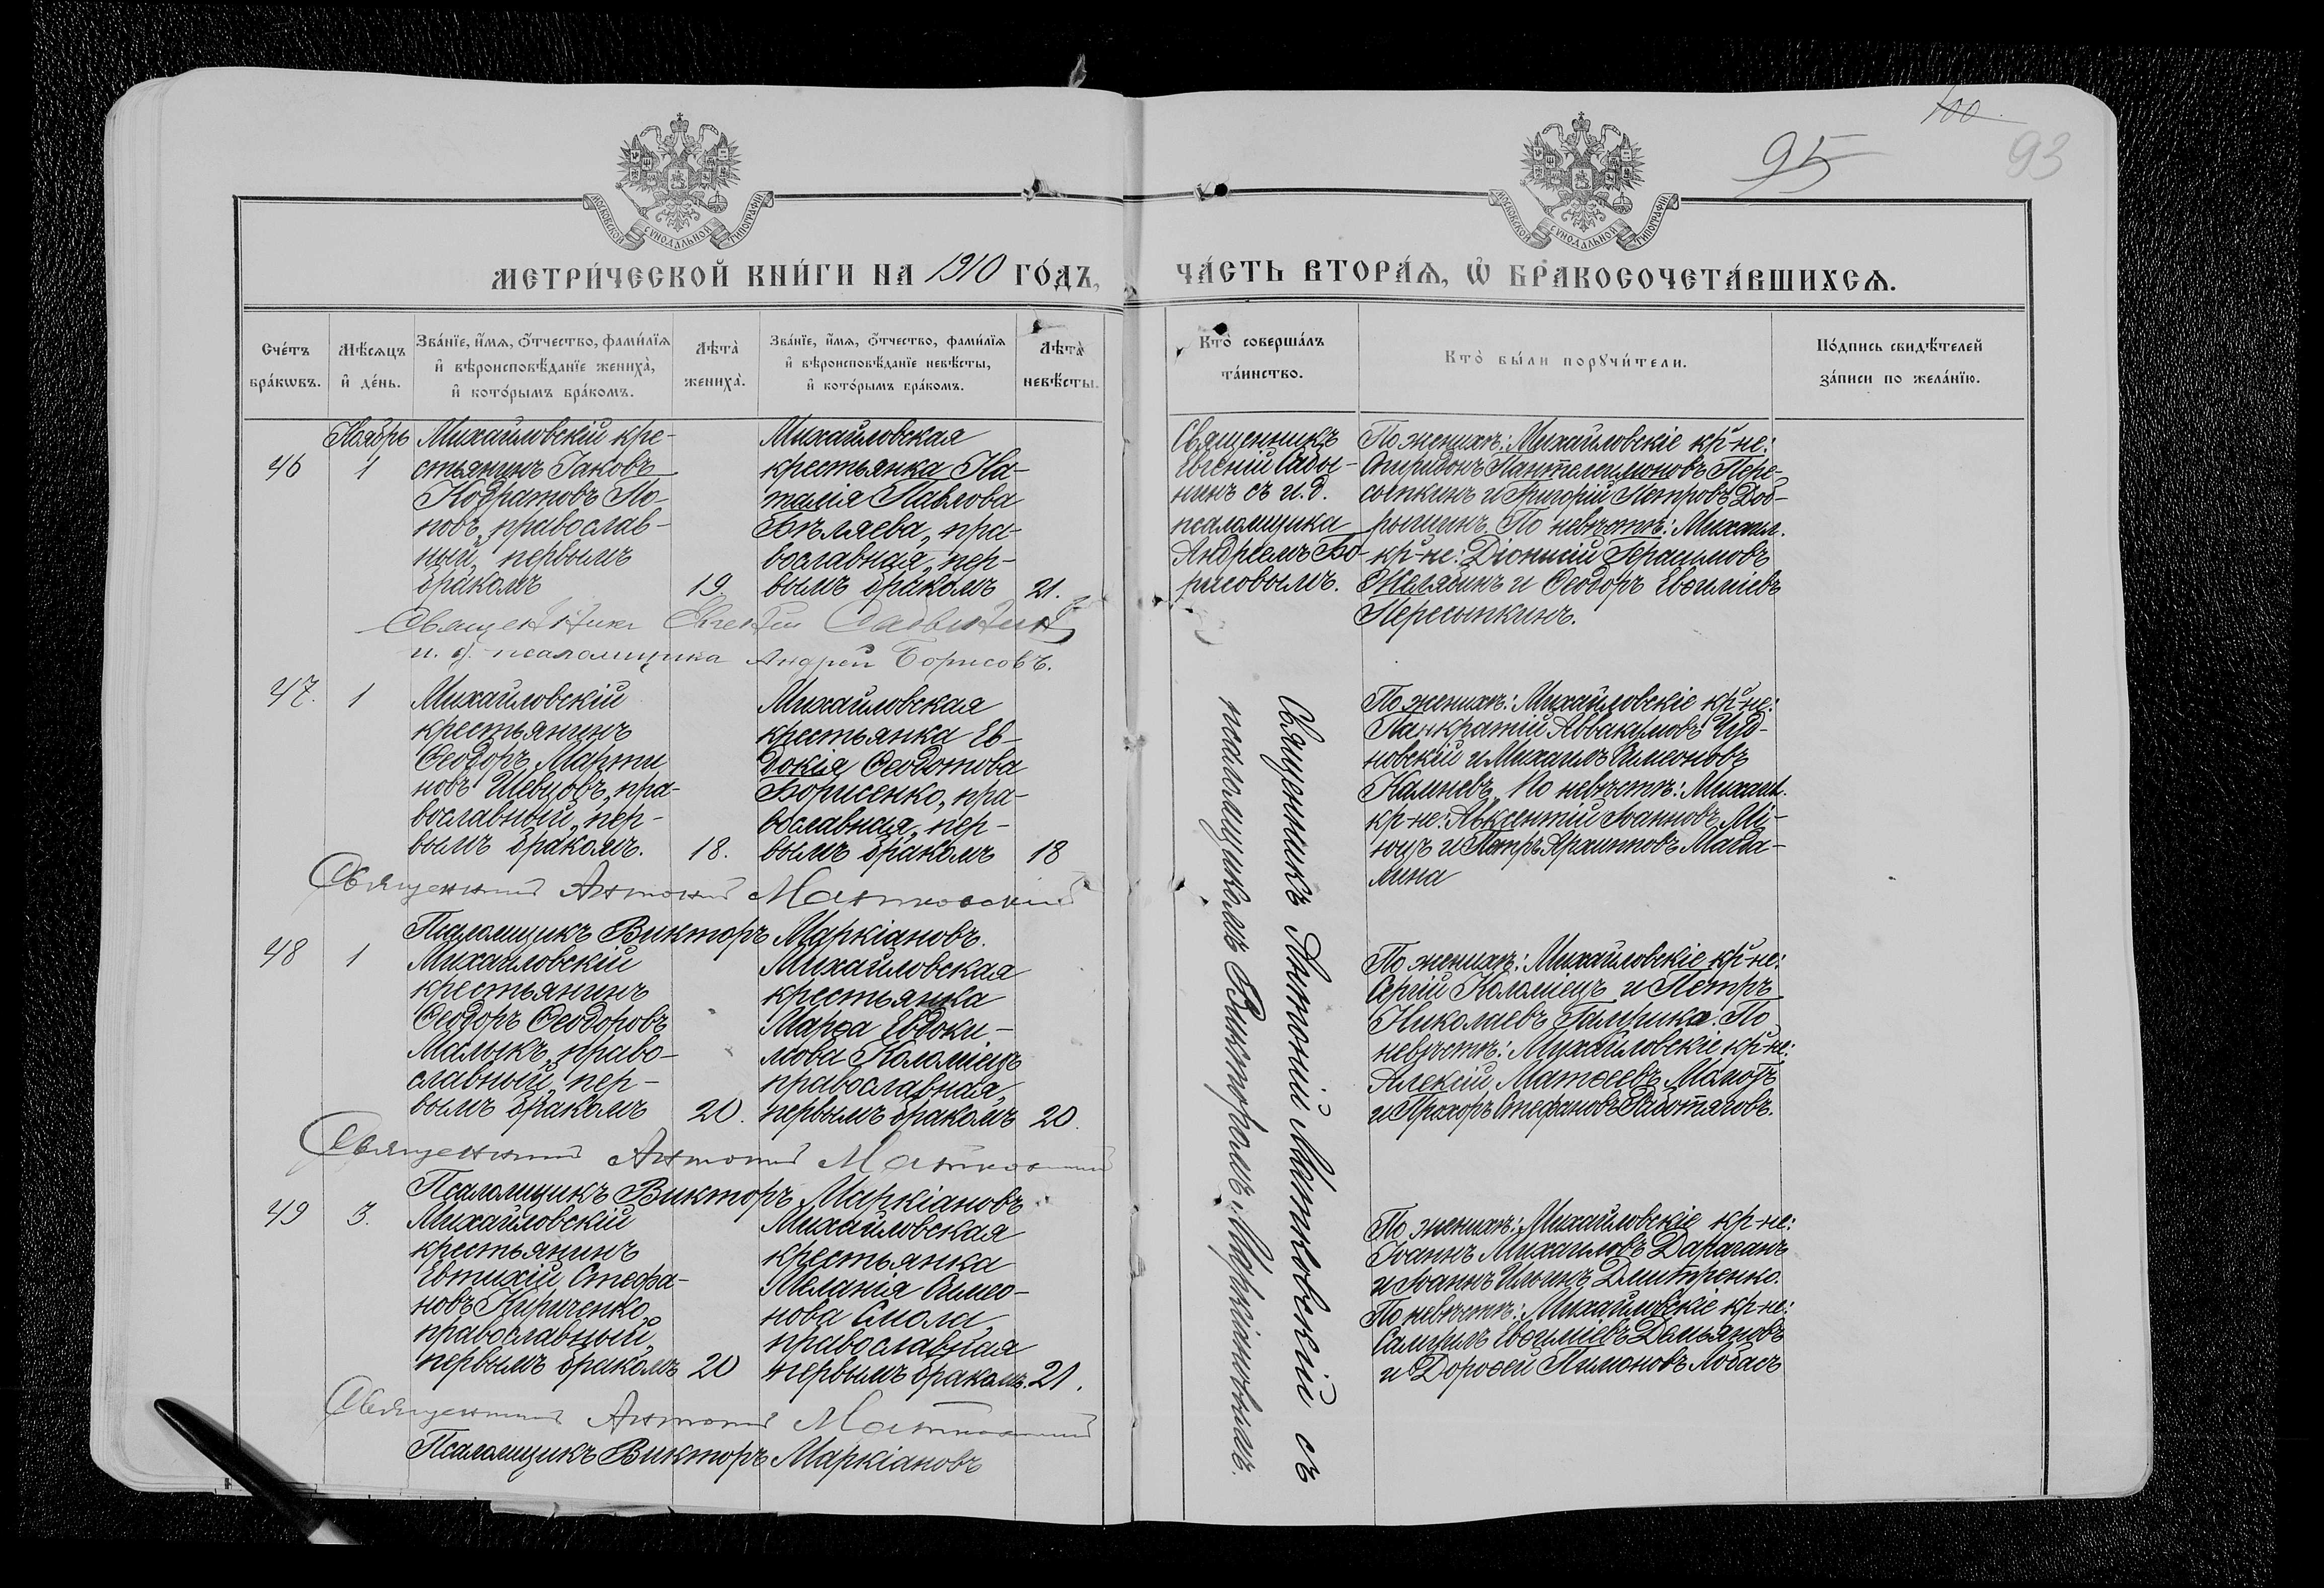 100
95
93
МОСКОВСКОЙ СѴНОДАЛЬНОЙ ТИПОГРАФІИ
МОСКОВСКОЙ СѴНОДАЛЬНОЙ ТИПОГРАФІИ
МЕТРИ́ЧЕСКОЙ КНИ́ГИ НА 1910 ГО́ДЪ,
ЧА́СТЬ ВТОРА́Ѧ, Ѡ҆ БРАКОСОЧЕТА́ВШИХСѦ.
Сче́тъ бра́кѡвъ.
Мѣ́сѧцъ и҆ де́нь.
Зва́нїе, и҆́мѧ, ѻ҆́тчество, фами́лїѧ
и҆ вѣроисповѣ́данїе жениха̀,
и҆ кото́рымъ бра́комъ.
Лѣта̀ жениха̀.
Зва́нїе, и҆́мѧ, ѻ҆́тчество, фами́лїѧ
и҆ вѣроисповѣ́данїе невѣ́сты,
и҆ кото́рымъ бра́комъ.
Лѣта̀ невѣ́сты.
Кто̀ соверша́лъ
та́инство.
Кто̀ бы́ли порꙋчи́тели.
По́дпись свидѣ́телей
за́писи по жела́нїю.
Ноябрь
46
1
Михайловскій кре-
стьянинъ Іаковъ
Кодратовъ По-
повъ, православ-
ный, первымъ
бракомъ
19.
Михайловская
крестьянка На-
талія Павлова
Бѣляева, пра-
вославная, пер-
вымъ бракомъ
21.
Священникъ
Евгеній Сады-
нинъ съ и.д.
псаломщика
Андреемъ Бо-
рисовымъ.
По женихѣ: Михайловскіе кр-не:
Спиридонъ Пантелеимоновъ Пере-
сыпкинъ и Григорій Петровъ Доб-
рынинъ. По невѣстѣ: Михаил.
кр-не: Діонисій Герасимовъ
и Ѳеодоръ Евѳиміевъ
Пересыпкинъ.
Священникъ Евгеній
и. д. псаломщика Андрей Борисовъ.
47.
1
Михайловскій
крестьянинъ
Ѳеодоръ Марти
новъ Шевцовъ, пра-
вославный, пер-
вымъ бракомъ.
18.
Михайловская
крестьянка Ев-
докія Ѳеодотова
Борисенко, пра-
вославная, пер-
вымъ бракомъ
18
По женихѣ: Михайловскіе кр-не:
Панкратій Аввакумовъ Чуд-
новскій и Михаилъ Симеоновъ
Калневъ. По невѣстѣ: Михаил.
кр-не: Авксентій Іоанновъ Мі-
юцъ и Петръ Архиповъ Магда-
лина
Священникъ Антоній Матковскій
Псаломщикъ Викторъ Маркіановъ.
48
1
Михайловскій
крестьянинъ
Ѳеодоръ Ѳеодоровъ
Малыкъ, право-
славный, пер-
вымъ бракомъ
20.
Михайловская
крестьянка
Марѳа Евдоки-
мова Коломіецъ
православная,
первымъ бракомъ
20.
По женихѣ: Михайловскіе кр-не:
Сергій Коломіецъ и Петръ
Николаевъ Гамрика. По
невѣстѣ: Михайловскіе кр-не:
Алексій Матѳеевъ
и Прохоръ Стефановъ Работяговъ.
Священникъ Антоній Матковскій
Псаломщикъ Викторъ Маркіановъ
49
3.
Михайловскій
крестьянинъ
Евтихій Стефа-
новъ Кириченко,
православный,
первымъ бракомъ
20
Михайловская
крестьянка
Меланія Симео-
нова Смола,
православная
первымъ бракомъ.
21.
По женихѣ: Михайловскіе кр-не:
Іоаннъ Михаиловъ Дараганъ
и Іоаннъ Ильинъ Дмитренко.
По невѣстѣ: Михайловскіе кр-не:
Самуилъ Евѳиміевъ Демьяновъ
и Дороѳей Пимоновъ Лобасъ
Священникъ Антоній Матковскій
Псаломщикъ Викторъ Маркіановъ
Священникъ Антоній Матковскій съ
псаломщикомъ Викторомъ Маркіановымъ.